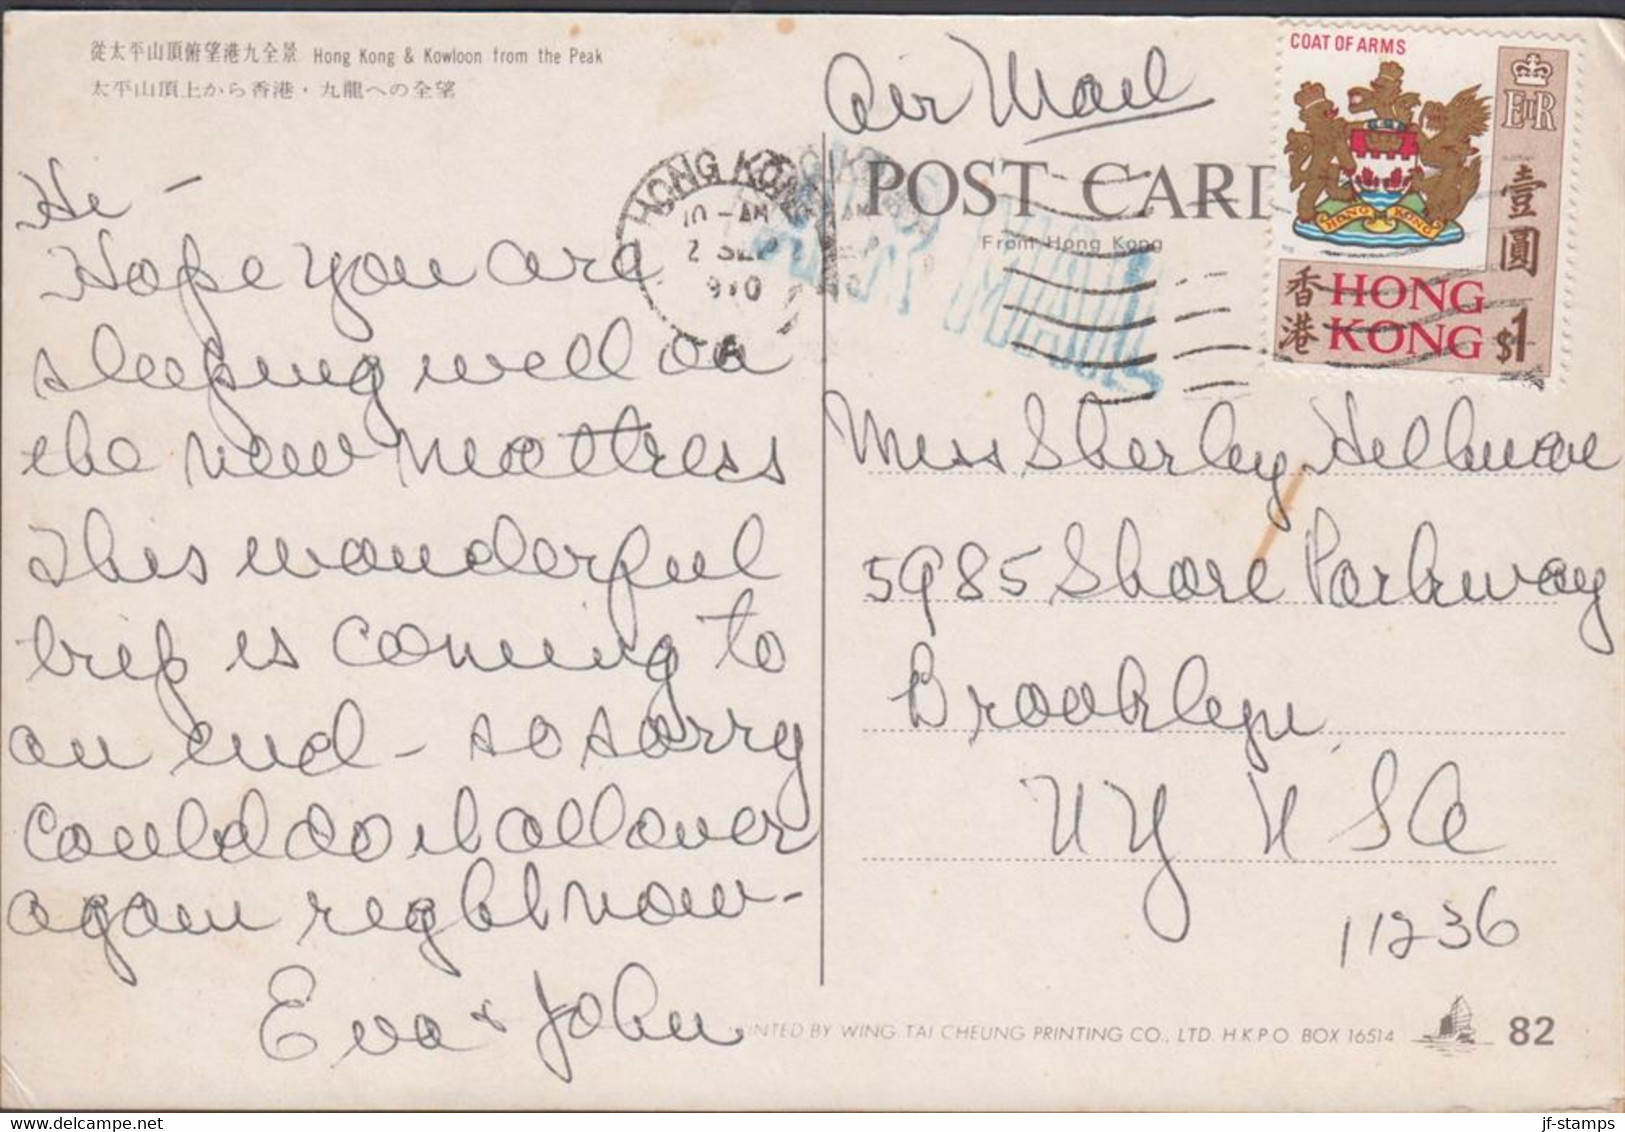 從太平山頂俯望港九全景 Hong Kong & Kowloon from the Peak
太平山頂上から香港・九龍への全望
Hi –
Hope you are
sleeping well on
the new mattress
This wonderful
trip is coming to
an end – so sorry
could do it all over
again right now –
Eva & John
Air Mail
POST CARD
From Hong Kong
HONG KONG
10 - AM
2 SEP
1970
AIR MAIL
COAT OF ARMS
EIIR
壹圓
HONG KONG
香港
HONG
KONG
$1
Miss Sherley Hellman
5985 Shore Parkway
Brooklyn
NY U S A
11236
PRINTED BY WING TAI CHEUNG PRINTING CO., LTD. H.K.P.O. BOX 16514
82
jf-stamps